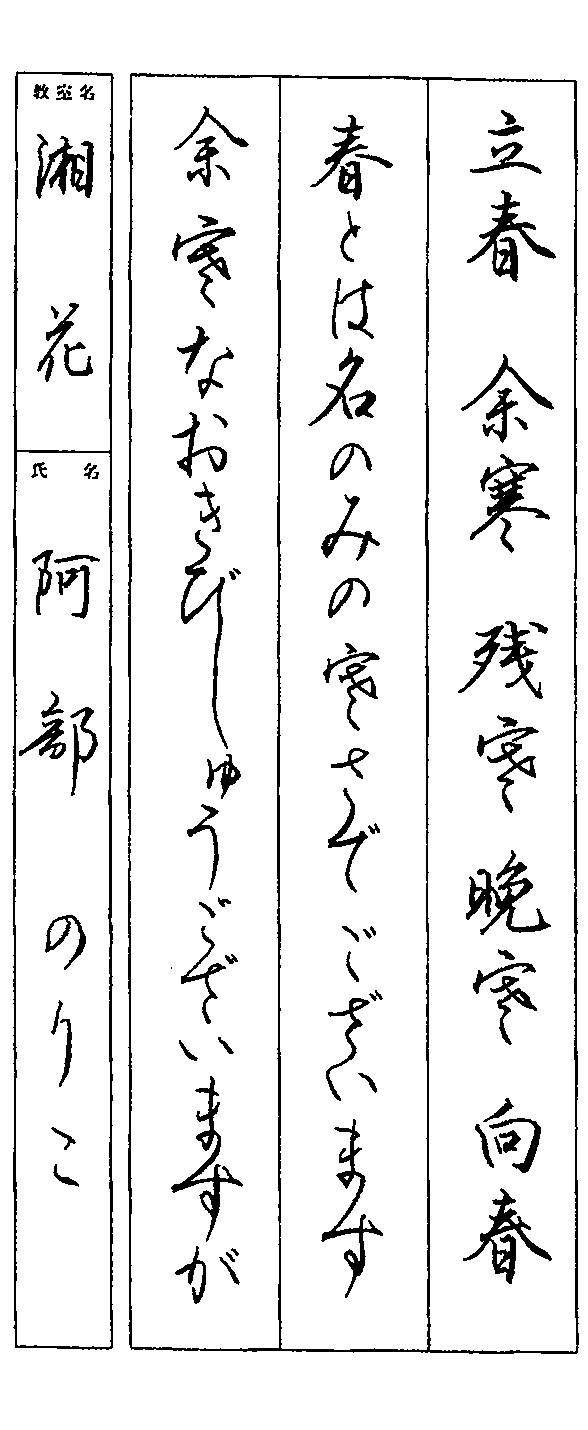 立春 余寒 残寒 晩寒 向春
春とは名のみの寒さでございます
余寒なおきびしゅうございますが
教室名
湘花
氏名
阿部 のりこ